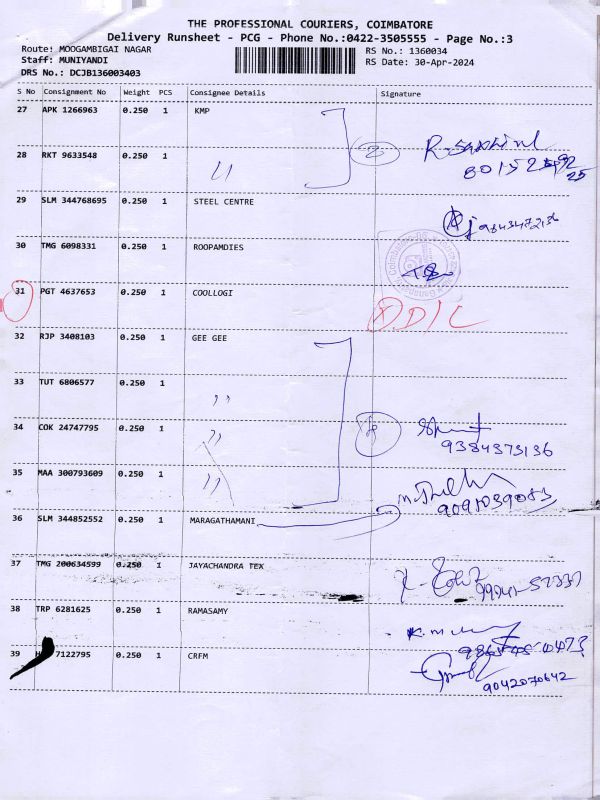 THE PROFESSIONAL COURIERS, COIMBATORE
Delivery Runsheet - PCG - Phone No.:0422-3505555 - Page No.:3
Route: MOOGAMBIGAI NAGAR
RS No.: 1360034
Staff: MUNIYANDI
RS Date: 30-Apr-2024
DRS No.: DCJB136003403
S No Consignment No Weight PCS Consignee Details Signature
27 APK 1266963 0.250 1 KMP
28 RKT 9633548 0.250 1 〃
2
29 SLM 344768695 0.250 1 STEEL CENTRE
30 TMG 6098331 0.250 1 ROOPAMDIES
31 PGT 4637653 0.250 1 COOLLOGI
D/L
32 RJP 3408103 0.250 1 GEE GEE
33 TUT 6806577 0.250 1 〃
34 COK 24747795 0.250 1 〃
9384373136
35 MAA 300793609 0.250 1 〃
36 SLM 344852552 0.250 1 MARAGATHAMANI
37 TMG 200634599 0.250 1 JAYACHANDRA TEX
38 TRP 6281625 0.250 1 RAMASAMY
39 7122795 0.250 1 CRFM
9042070642